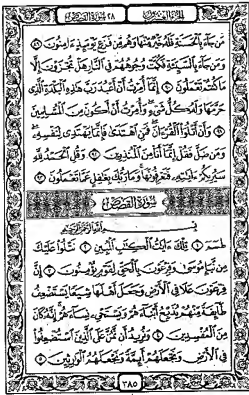 الجزء العشرون ٢٨ سورة القصص
مَن جَآءَ بِٱلْحَسَنَةِ فَلَهُۥ خَيْرٌ مِّنْهَا وَهُم مِّن فَزَعٍ يَوْمَئِذٍ ءَامِنُونَ ٨٩
وَمَن جَآءَ بِٱلسَّيِّئَةِ فَكُبَّتْ وُجُوهُهُمْ فِى ٱلنَّارِ هَلْ تُجْزَوْنَ إِلَّا
مَا كُنتُمْ تَعْمَلُونَ ٩٠ إِنَّمَآ أُمِرْتُ أَنْ أَعْبُدَ رَبَّ هَٰذِهِ ٱلْبَلْدَةِ ٱلَّذِى
حَرَّمَهَا وَلَهُۥ كُلُّ شَىْءٍ وَأُمِرْتُ أَنْ أَكُونَ مِنَ ٱلْمُسْلِمِينَ
٩١ وَأَنْ أَتْلُوَا۟ ٱلْقُرْءَانَ فَمَنِ ٱهْتَدَىٰ فَإِنَّمَا يَهْتَدِى لِنَفْسِهِۦ
وَمَن ضَلَّ فَقُلْ إِنَّمَآ أَنَا۠ مِنَ ٱلْمُنذِرِينَ ٩٢ وَقُلِ ٱلْحَمْدُ لِلَّهِ
سَيُرِيكُمْ ءَايَٰتِهِۦ فَتَعْرِفُونَهَا وَمَا رَبُّكَ بِغَٰفِلٍ عَمَّا تَعْمَلُونَ ٩٣
سورة القصص
بِسْمِ ٱللَّهِ ٱلرَّحْمَٰنِ ٱلرَّحِيمِ
طسٓمٓ ١ تِلْكَ ءَايَٰتُ ٱلْكِتَٰبِ ٱلْمُبِينِ ٢ نَتْلُوا۟ عَلَيْكَ
مِن نَّبَإِ مُوسَىٰ وَفِرْعَوْنَ بِٱلْحَقِّ لِقَوْمٍ يُؤْمِنُونَ ٣ إِنَّ
فِرْعَوْنَ عَلَا فِى ٱلْأَرْضِ وَجَعَلَ أَهْلَهَا شِيَعًا يَسْتَضْعِفُ
طَآئِفَةً مِّنْهُمْ يُذَبِّحُ أَبْنَآءَهُمْ وَيَسْتَحْىِۦ نِسَآءَهُمْ إِنَّهُۥ كَانَ
مِنَ ٱلْمُفْسِدِينَ ٤ وَنُرِيدُ أَن نَّمُنَّ عَلَى ٱلَّذِينَ ٱسْتُضْعِفُوا۟
فِى ٱلْأَرْضِ وَنَجْعَلَهُمْ أَئِمَّةً وَنَجْعَلَهُمُ ٱلْوَٰرِثِينَ ٥
٣٨٥